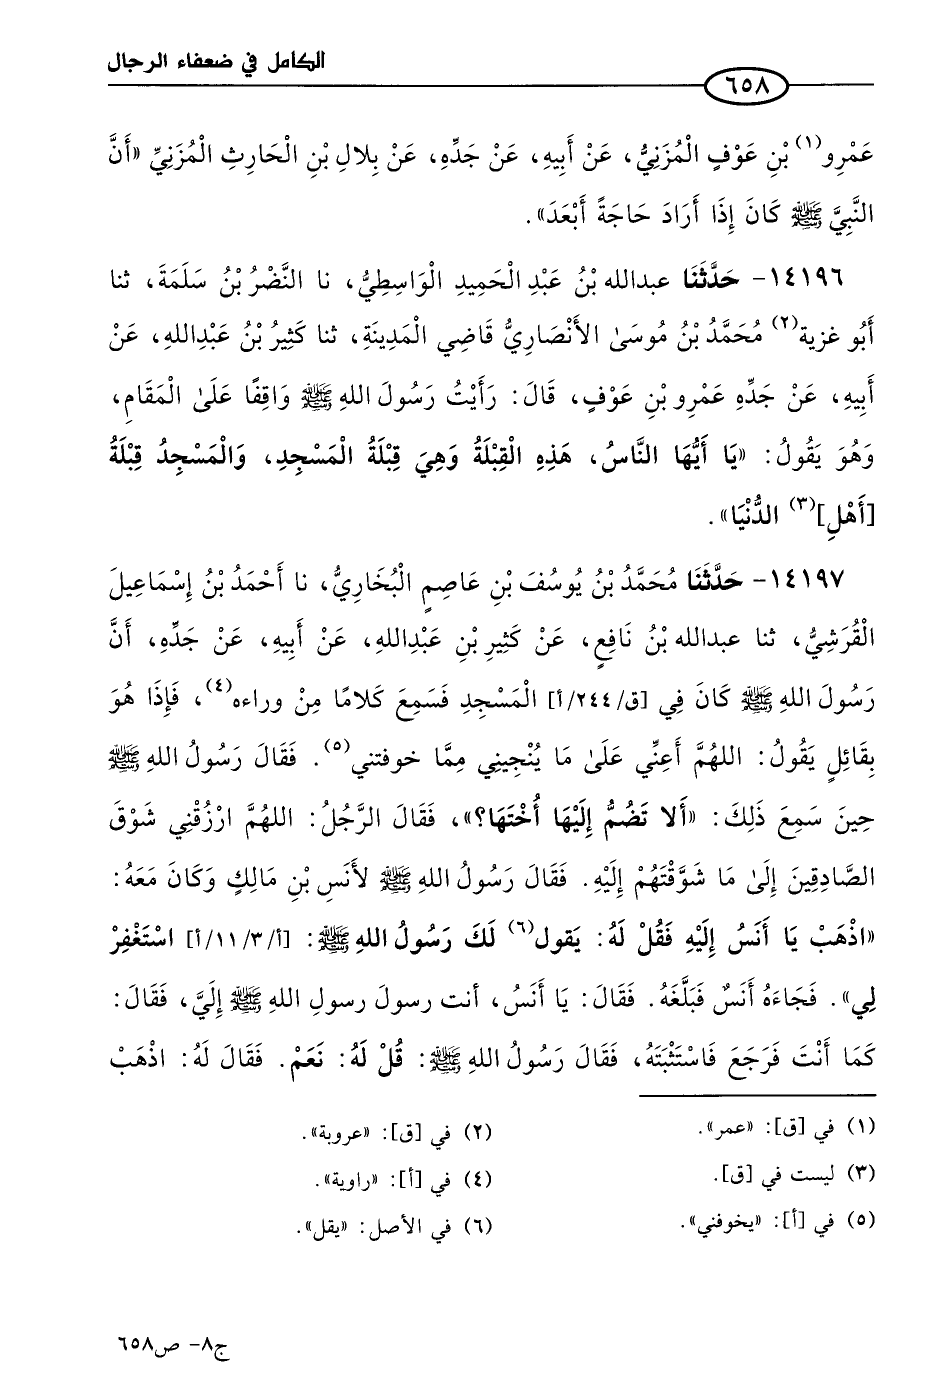 الكامل في ضعفاء الرجال
٦٥٨
عَمْرِو(١) بْنِ عَوْفٍ الْمُزَنِيُّ، عَنْ أَبِيهِ، عَنْ جَدِّهِ، عَنْ بِلالِ بْنِ الْحَارِثِ الْمُزَنِيِّ «أَنَّ
النَّبِيَّ ﷺ كَانَ إِذَا أَرَادَ حَاجَةً أَبْعَدَ».
١٤١٩٦- حَدَّثَنَا عبدالله بْنُ عَبْدِ الْحَمِيدِ الْوَاسِطِيُّ، نا النَّضْرُ بْنُ سَلَمَةَ، ثنا
أَبُو غزية(٢) مُحَمَّدُ بْنُ مُوسَىٰ الأَنْصَارِيُّ قَاضِي الْمَدِينَةِ، ثنا كَثِيرُ بْنُ عَبْدِاللهِ، عَنْ
أَبِيهِ، عَنْ جَدِّهِ عَمْرِو بْنِ عَوْفٍ، قَالَ: رَأَيْتُ رَسُولَ اللهِ ﷺ وَاقِفًا عَلَىٰ الْمَقَامِ،
وَهُوَ يَقُولُ: «يَا أَيُّهَا النَّاسُ، هَذِهِ الْقِبْلَةُ وَهِيَ قِبْلَةُ الْمَسْجِدِ، وَالْمَسْجِدُ قِبْلَةُ
[أَهْلِ](٣) الدُّنْيَا».
١٤١٩٧- حَدَّثَنَا مُحَمَّدُ بْنُ يُوسُفَ بْنِ عَاصِمٍ الْبُخَارِيُّ، نا أَحْمَدُ بْنُ إِسْمَاعِيلَ
الْقُرَشِيُّ، ثنا عبدالله بْنُ نَافِعٍ، عَنْ كَثِيرِ بْنِ عَبْدِاللهِ، عَنْ أَبِيهِ، عَنْ جَدِّهِ، أَنَّ
رَسُولَ اللهِ ﷺ كَانَ فِي [ق/٢٤٤/أ] الْمَسْجِدِ فَسَمِعَ كَلامًا مِنْ وراءه(٤)، فَإِذَا هُوَ
بِقَائِلٍ يَقُولُ: اللهُمَّ أَعِنِّي عَلَىٰ مَا يُنْجِينِي مِمَّا خوفتني(٥). فَقَالَ رَسُولُ اللهِ ﷺ
حِينَ سَمِعَ ذَلِكَ: «أَلا تَضُمُّ إِلَيْهَا أُخْتَهَا؟»، فَقَالَ الرَّجُلُ: اللهُمَّ ارْزُقْنِي شَوْقَ
الصَّادِقِينَ إِلَىٰ مَا شَوَّقْتَهُمْ إِلَيْهِ. فَقَالَ رَسُولُ اللهِ ﷺ لأَنَسِ بْنِ مَالِكٍ وَكَانَ مَعَهُ:
«اذْهَبْ يَا أَنَسُ إِلَيْهِ فَقُلْ لَهُ: يَقول(٦) لَكَ رَسُولُ اللهِ ﷺ: [أ/١١/٣/أ] اسْتَغْفِرْ
لِي». فَجَاءَهُ أَنَسٌ فَبَلَّغَهُ. فَقَالَ: يَا أَنَسُ، أنت رسولَ رسولِ اللهِ ﷺ إِلَيَّ، فَقَالَ:
كَمَا أَنْتَ فَرَجَعَ فَاسْتَثْبَتَهُ، فَقَالَ رَسُولُ اللهِ ﷺ: قُلْ لَهُ: نَعَمْ. فَقَالَ لَهُ: اذْهَبْ
(١) في [ق]: «عمر».
(٢) في [ق]: «عروبة».
(٣) ليست في [ق].
(٤) في [أ]: «راوية».
(٥) في [أ]: «يخوفني».
(٦) في الأصل: «يقل».
ج٨- ص٦٥٨